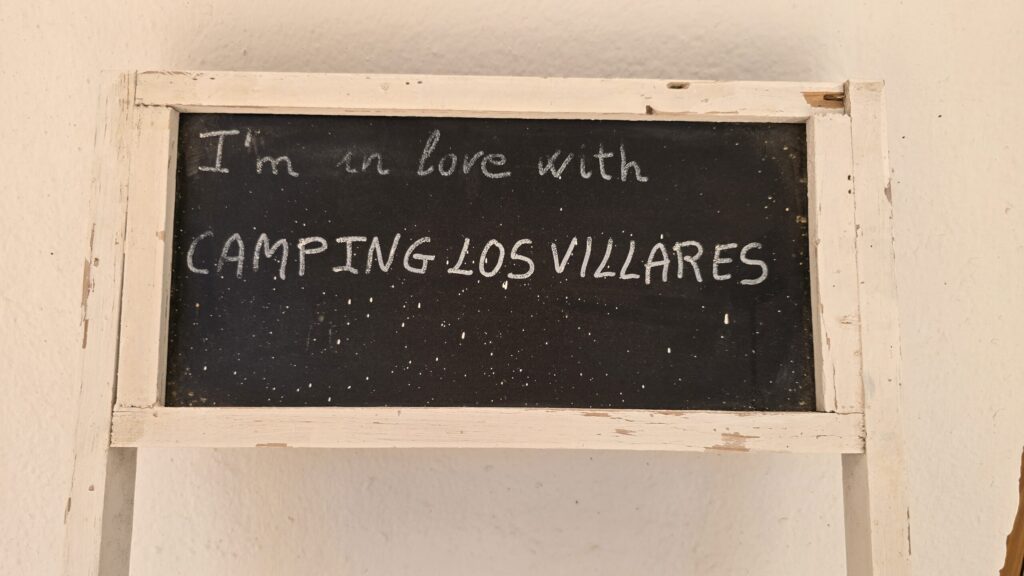 I'm in love with
CAMPING LOS VILLARES